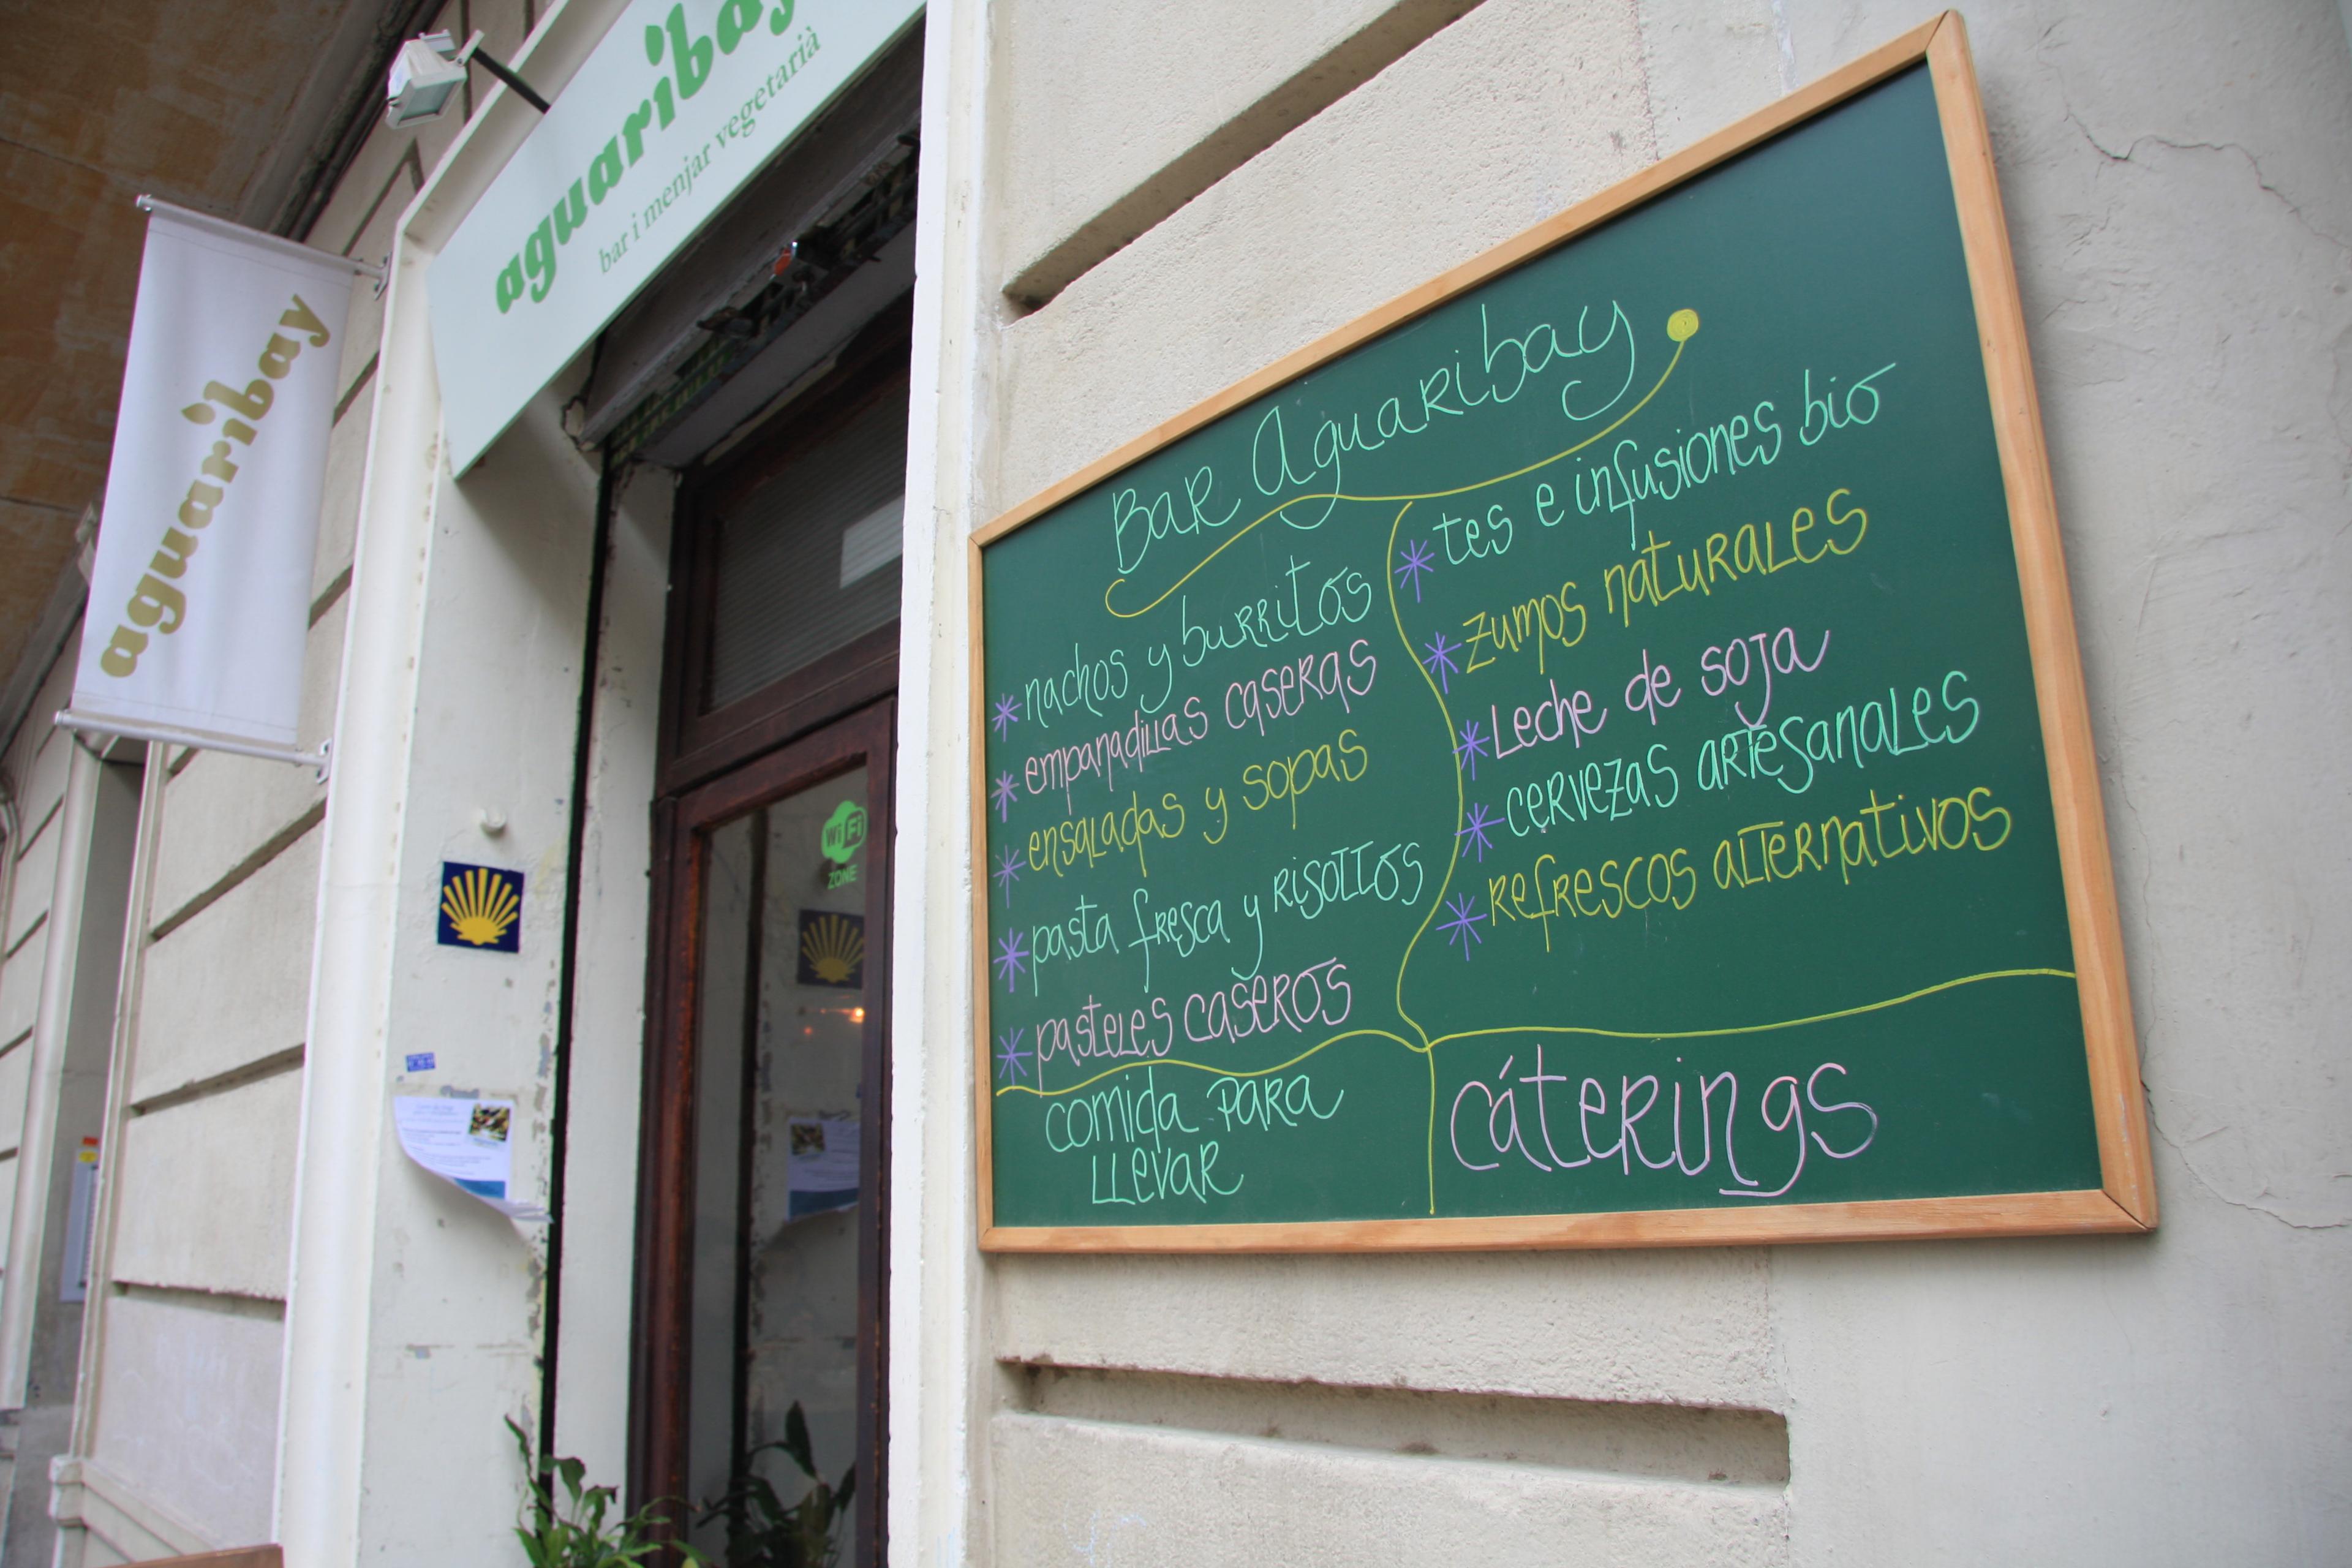 aguaribay
bar i menjar vegetarià
aguaribay
Wi Fi
ZONE
Bar Aguaribay
nachos y burritos
empanadillas caseras
ensaladas y sopas
pasta fresca y risottos
pasteles caseros
tes e infusiones bio
zumos naturales
Leche de soja
cervezas artesanales
refrescos alternativos
comida para
llevar
cáterings